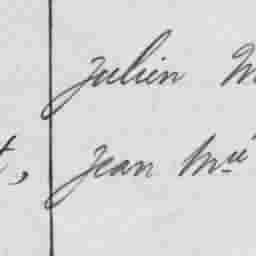 Julien M
t, Jean Mie